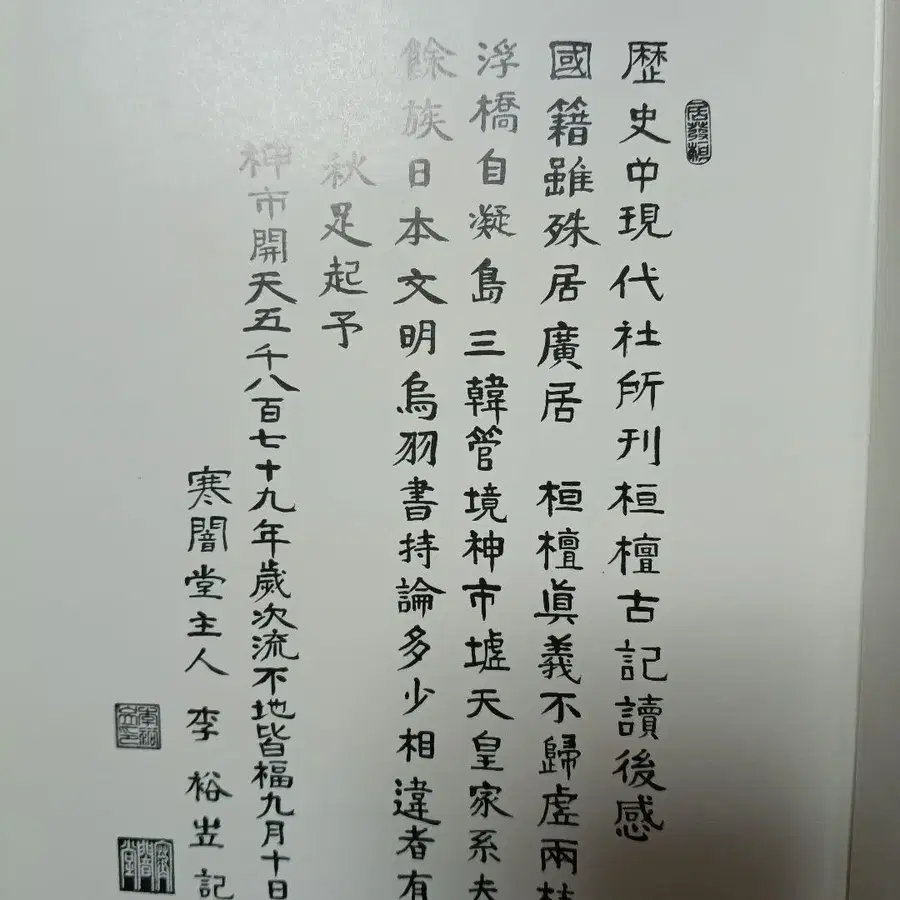 居發桓
歴史中現代社所刊桓檀古記讀後感
國籍雖殊居廣居 桓檀眞義不歸虛兩
浮橋自凝島三韓管境神市墟天皇家系夫
餘族日本文明烏羽書持論多少相違者有
秋足起予
神市開天五千八百七十九年歲次流不地皆福九月十日
寒闇堂主人 李裕岦記
寒闇堂